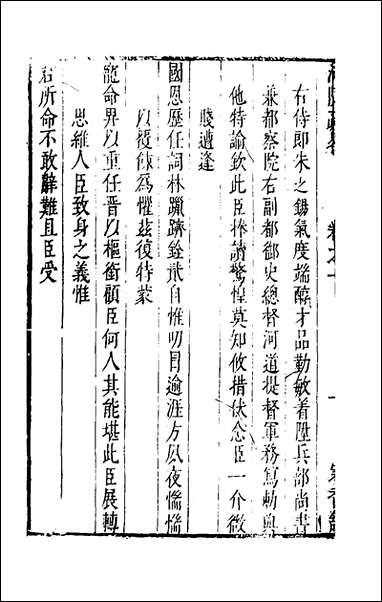 卷之一
右侍郎朱之錫氣度端醇才品勤敏着陞兵部尚書
兼都察院右副都御史總督河道提督軍務寫勅與
他特諭欽此臣捧讀驚惶莫知攸措伏念臣一介微
賤遭逢
國恩歷任詞林躐躋銓貳自惟叨冒逾涯方夙夜惴惴
以覆餗爲懼茲復特蒙
寵命畀以重任晋以樞銜顧臣何人其能堪此臣展轉
思維人臣致身之義惟
君所命不敢辭難且臣受